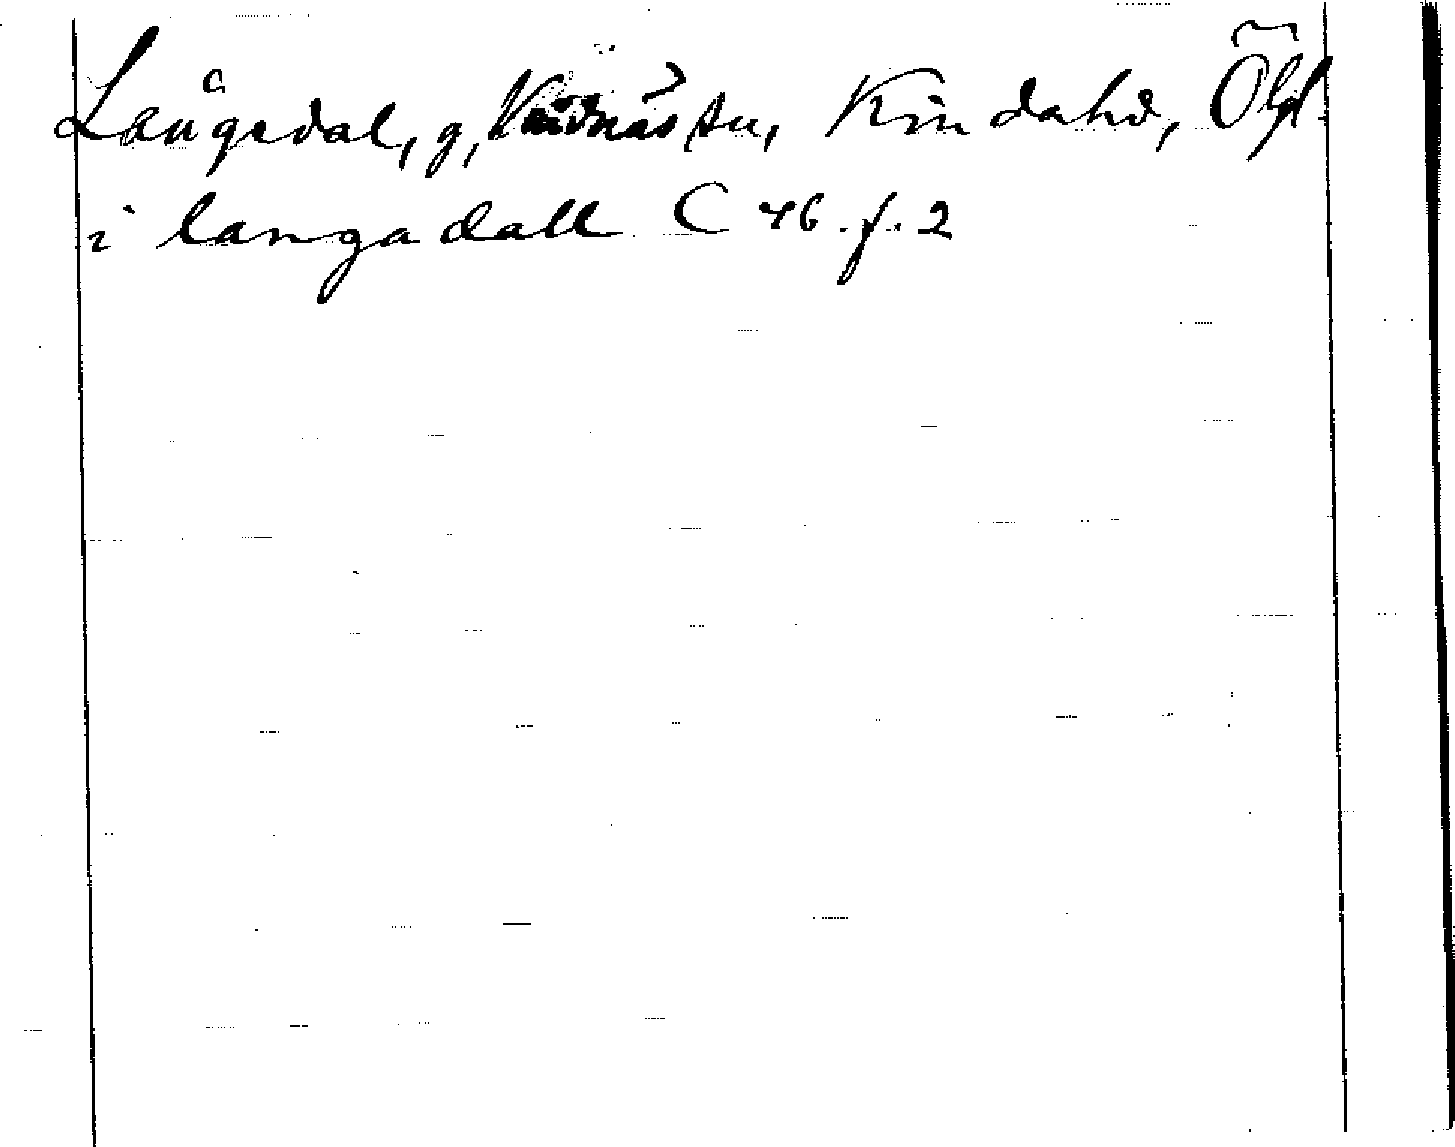 Långedal, g, sn, Kinda hd, Ögl.
i langadall C 46. f. 2